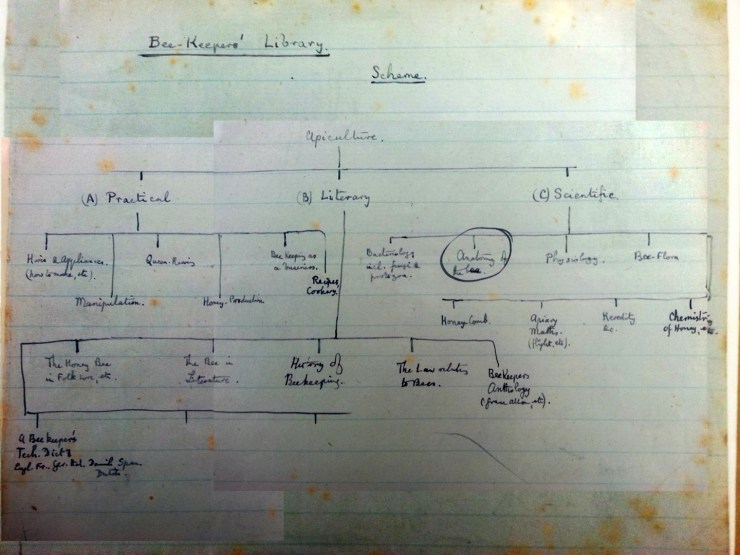 Bee-Keepers' Library.
Scheme.
Apiculture.
(A) Practical
(B) Literary
(C) Scientific.
Hives & Appliances.
(how to make, etc).
Queen-Rearing
Bee keeping as
a business.
Bacteriology
incl. fungi &
protozoa.
Anatomy of
the bee
Physiology.
Bee-Flora
Manipulation.
Honey-Production
Recipes
Cookery.
Honey-Comb.
Apiary
Maths.
(flight, etc).
Heredity
&c.
Chemistry
of Honey,
The Honey Bee
in Folklore, etc.
The Bee in
Literature.
History of
Beekeeping.
The Law relating
to Bees.
Beekeepers
Anthology
A Beekeeper's
Tech. Dict.
Engl. Fr. Ger.
Dutch.